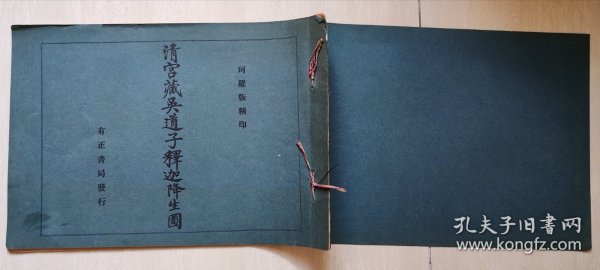 珂羅版精印
清宮藏吳道子釋迦降生圖
有正書局發行
孔夫子旧书网
www.kongfz.com